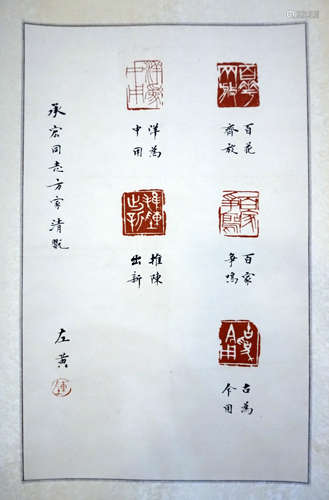 百花
齊放
百家
争鳴
古為
今用
洋為
中用
推陳
出新
承宏同志方家清玩
左黄